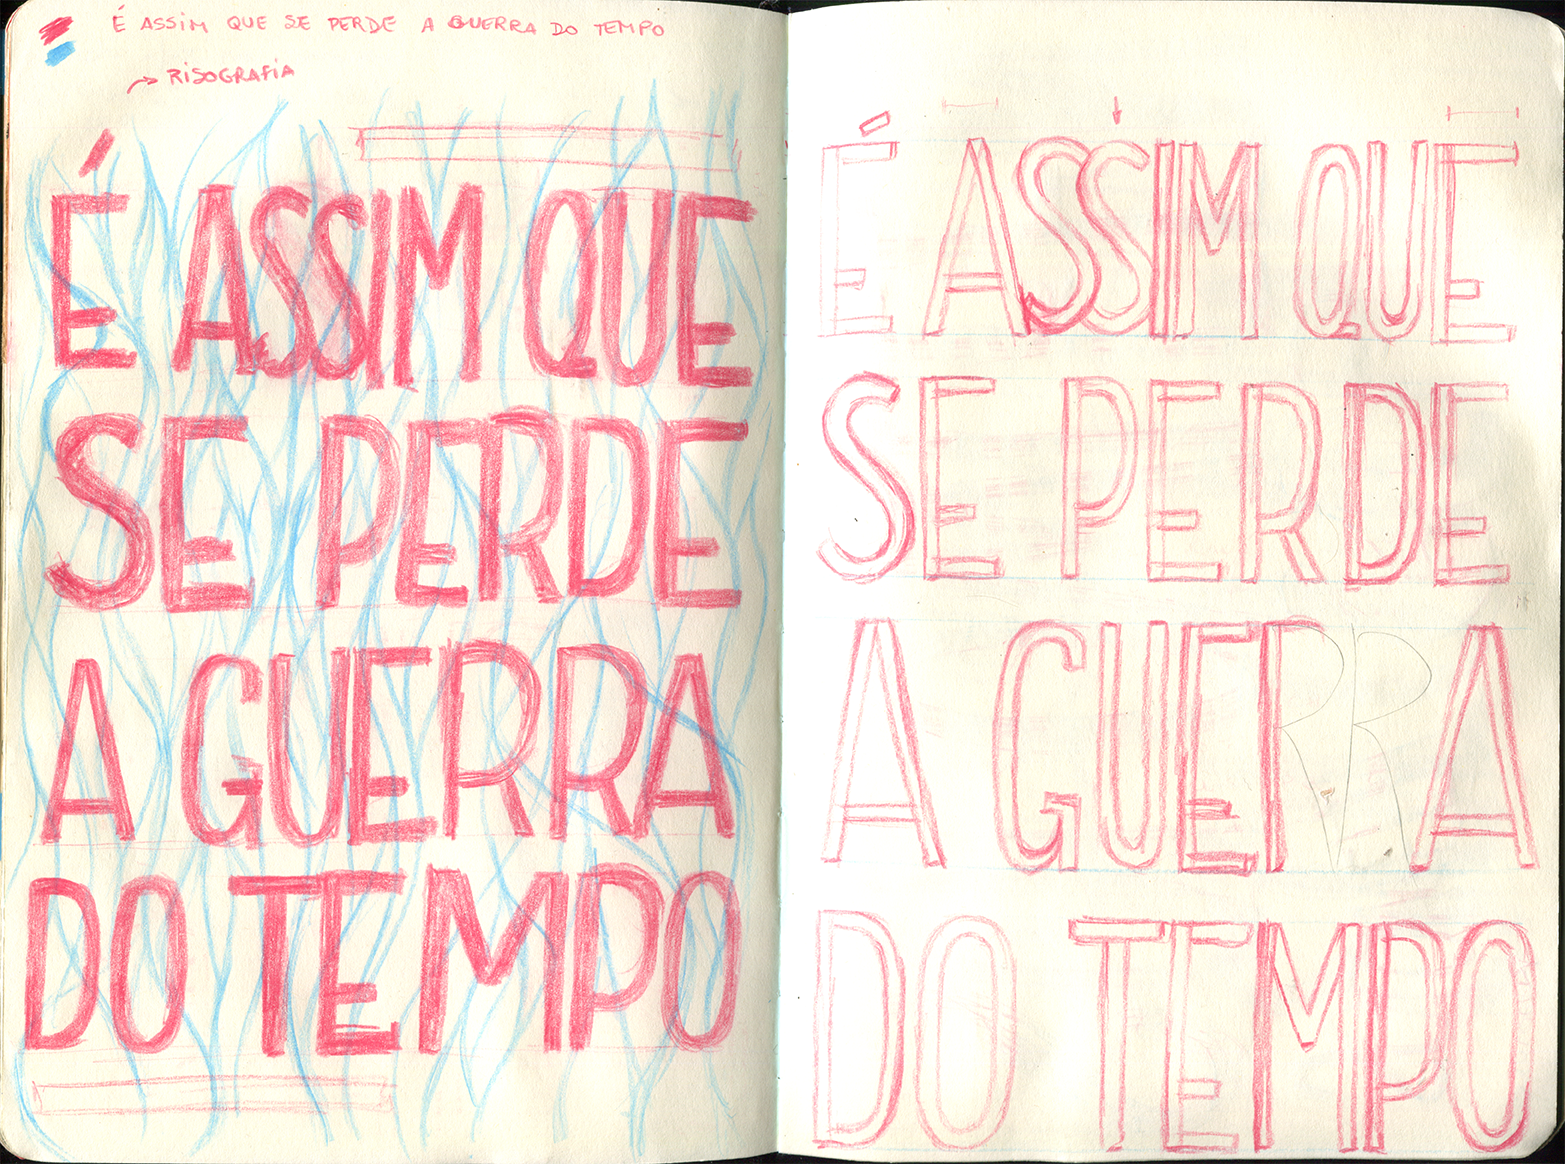 É ASSIM QUE SE PERDE A GUERRA DO TEMPO
RISOGRAFIA
É ASSIM QUE
SE PERDE
A GUERRA
DO TEMPO
É ASSIM QUE
SE PERDE
A GUERRA
DO TEMPO